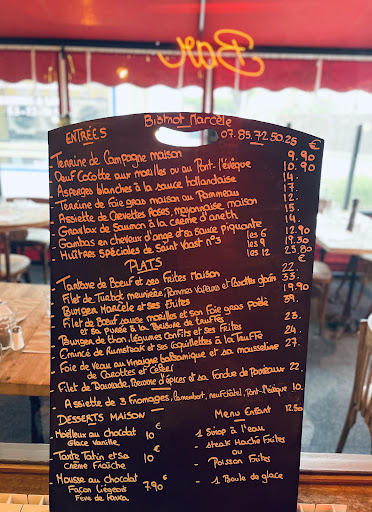 Bar
Bistrot Marcèle
07.85.72.50.25
ENTRÉES €
- Terrine de Campagne maison 9.90
- Oeuf Cocotte aux morilles ou au Pont-l'évêque 10.90
- Asperges blanches à la sauce hollandaise 14.
- Terrine de foie gras maison au Pommeau 17.
- Assiette de Crevettes Roses, mayonnaise maison 12.
- Gravlax de Saumon à la crème d'aneth 15.
- Gambas en cheveux d'ange et sa sauce piquante 14.
- Huîtres Spéciales de Saint Vaast n°3 les 6 12.90
les 9 19.30
les 12 25.80
PLATS €
- Tartare de Boeuf et ses Frites Maison 22.
- Filet de Turbot meunière, Pommes vapeurs et Carottes glacés 33.
- Burger Marcèle et ses Frites 19.90
- Filet de Boeuf sauce morilles et son Foie gras poêlé 39.
et sa purée à la Brisure de truffes
- Burger de thon, légumes confits et ses Frites 23.
- Emincé de Rumsteack et ses Coquillettes à la Truffe 24.
- Foie de veau au Vinaigre balsamique et sa mousseline 27.
de Carottes et Céleri
- Filet de Daurade, d'épices et sa Fondue de Poireaux 22.
- Assiette de 3 Fromages, Camembert, neufchâtel, Pont-l'évêque 10.
DESSERTS MAISON
- Moelleux au chocolat 10 €
Glace Vanille
- Tarte Tatin et sa 10 €
crème Fraîche
- Mousse au chocolat 7.90 €
Façon Liégeois
Fève de Tonka
Menu Enfant 12.50
- 1 Sirop à l'eau
- Steak Haché Frites
ou
Poisson Frites
- 1 Boule de glace